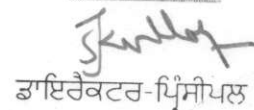 ਡਾਇਰੈਕਟਰ-ਪ੍ਰਿੰਸੀਪਲ